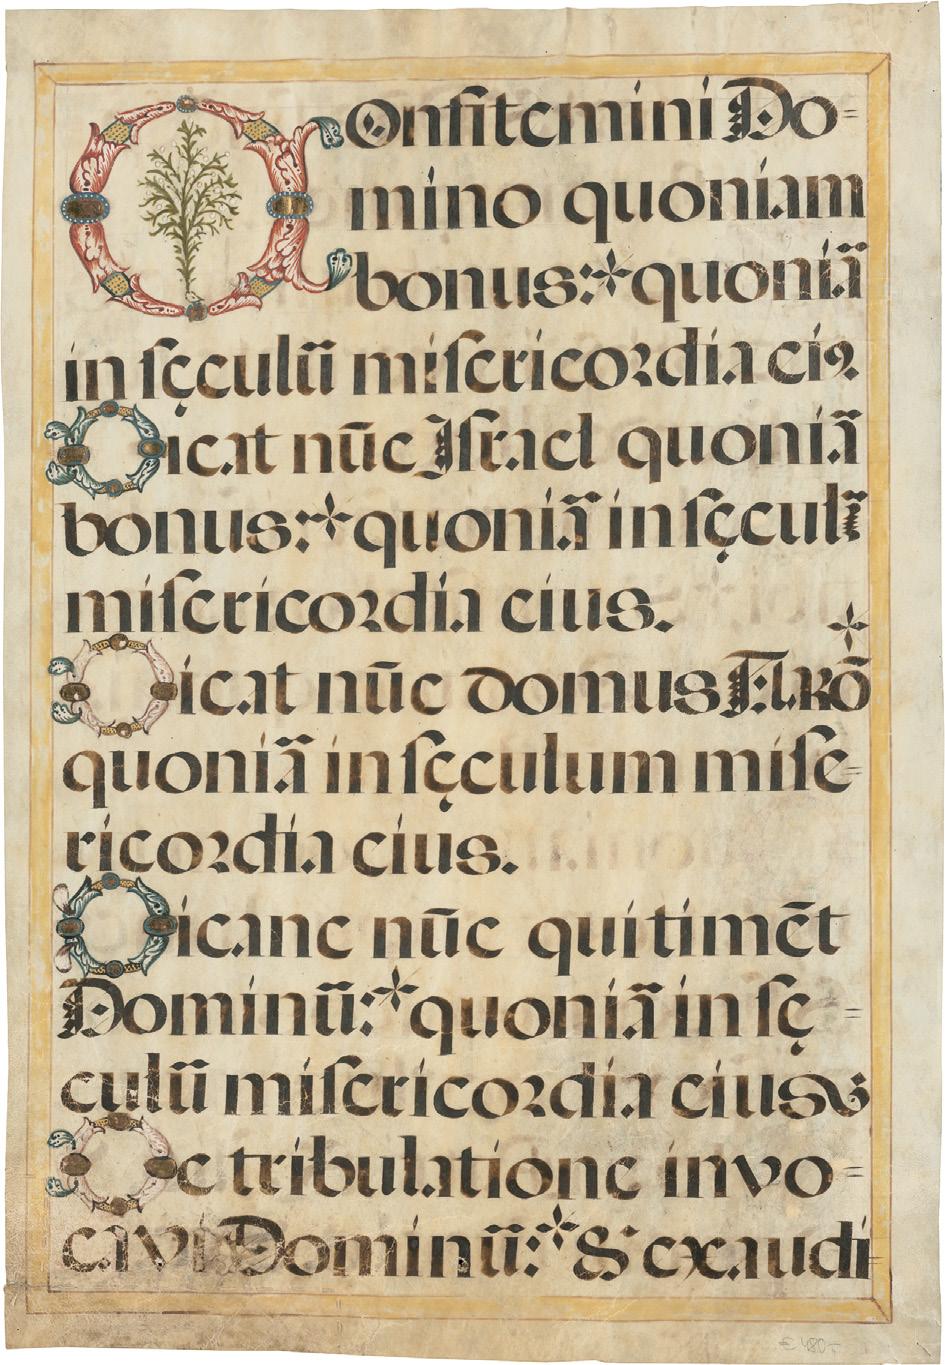 COnfitemini Do=
mino quoniam
bonus:* quoniã
in sęculũ misericordia eiꝰ
Dicat nũc Israel quoniã
bonus:* quoniã in sęculũ
misericordia eius. *
Dicat nũc domus Aarõ
quoniã in sęculum mise=
ricordia eius.
Dicant nũc qui timẽt
Dominũ:* quoniã in sę=
culũ misericordia eius
De tribulatione invo=
cavi Dominũ:* & exaudi=
€ 480-